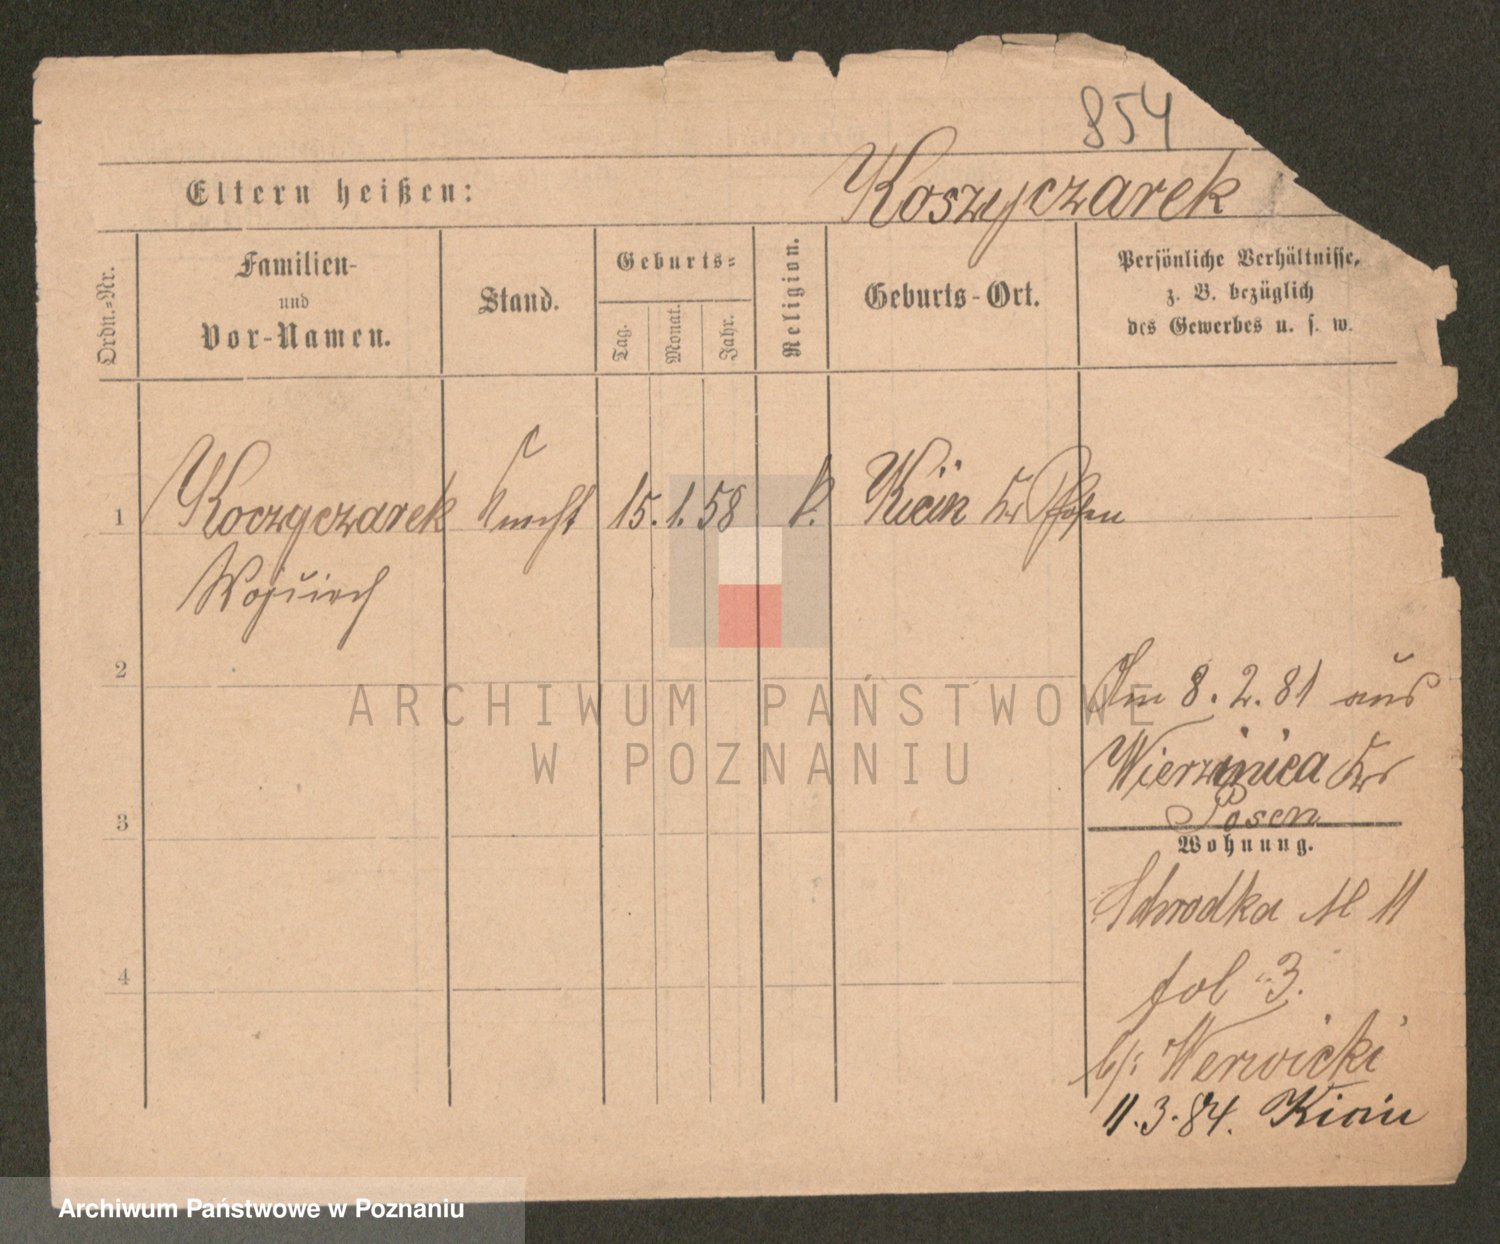 854
Eltern heißen:
Koszyczarek
Ordn.-Nr.
Familien-
und
Vor-Namen.
Stand.
Geburts-
Tag.
Monat.
Jahr.
Religion.
Geburts-Ort.
Persönliche Verhältnisse,
z. B. bezüglich
des Gewerbes u. s. w.
1 Koczyczarek Knecht 15. 1. 58 k. Kicin Kr Posen
Wojciech
2
Am 8. 2. 81 aus
Wierzenica Kr
Posen
3
Wohnung.
Schrodka № 11
4
fol 3.
b/: Werwicki
11.3.84. Kicin
ARCHIWUM PAŃSTWOWE
W POZNANIU
Archiwum Państwowe w Poznaniu